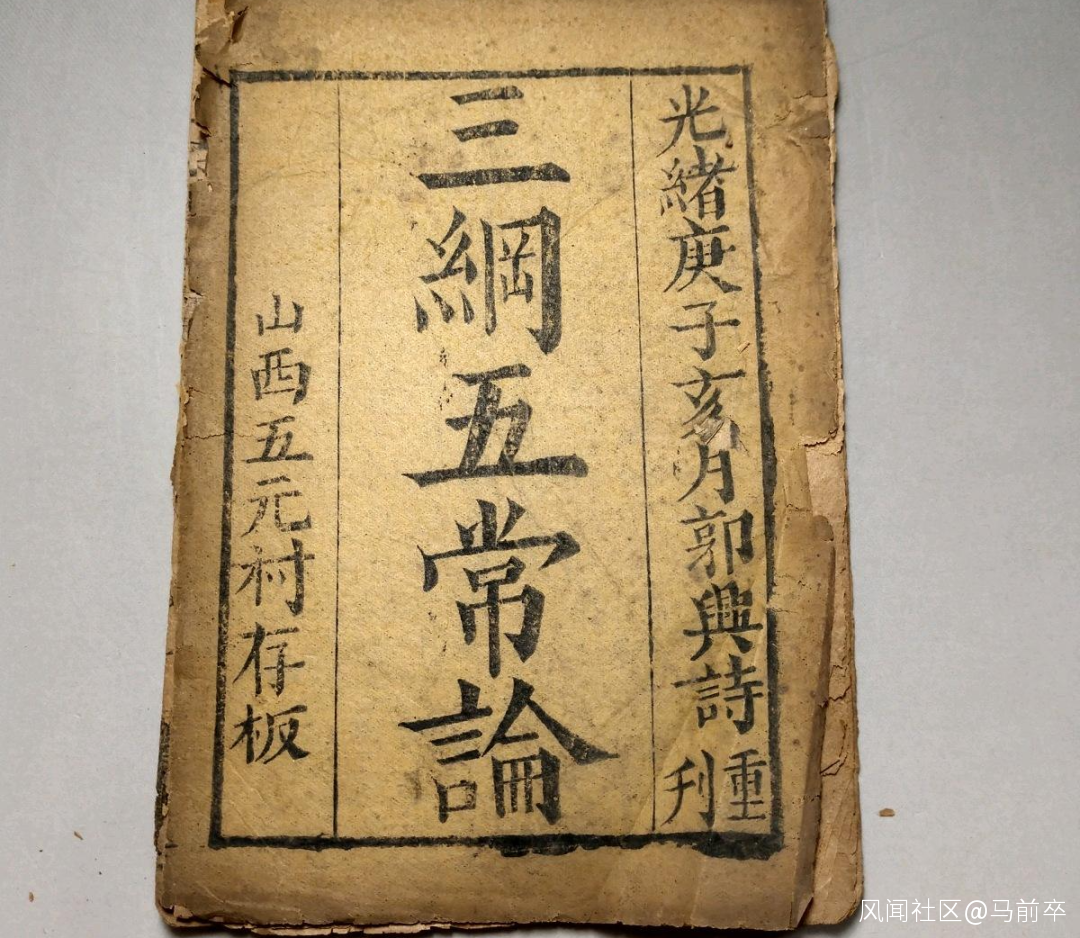 光緒庚子亥月郭興詩重刊
三綱五常論
山西五元村存板
风闻社区@马前卒